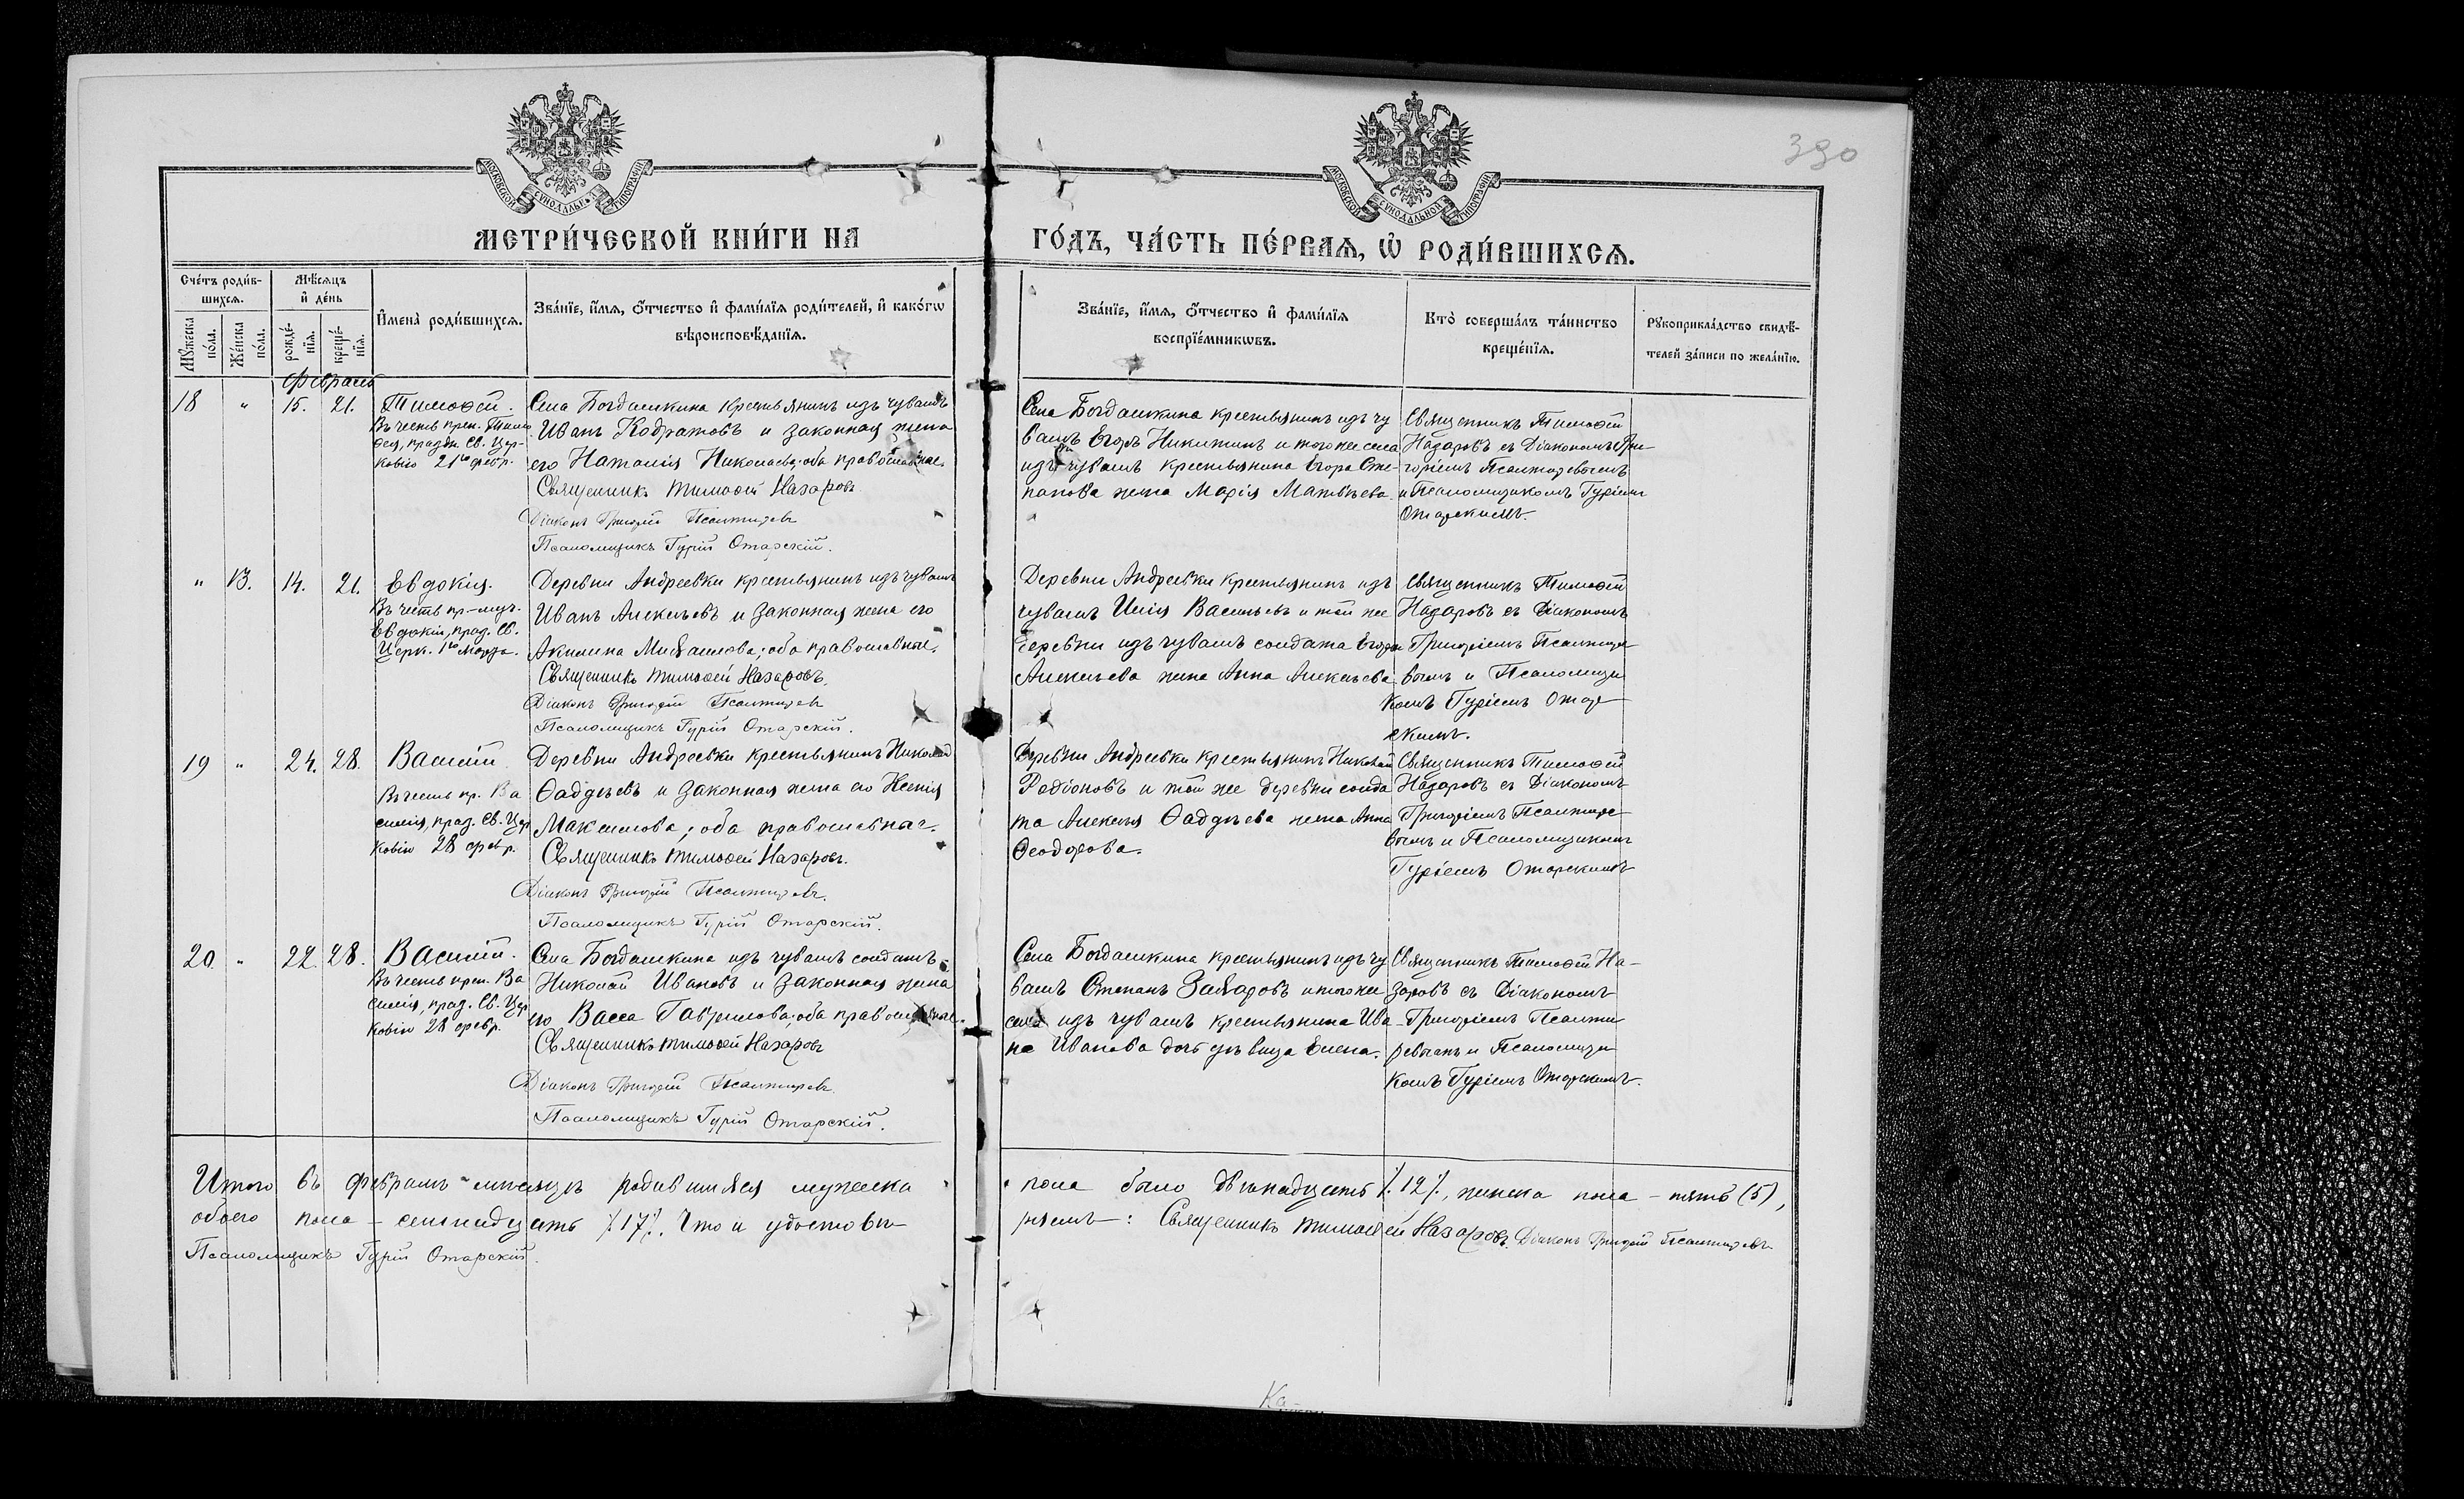 390
МОСКОВСКОЙ СѴНОДАЛЬНОЙ ТИПОГРАФІИ
МОСКОВСКОЙ СѴНОДАЛЬНОЙ ТИПОГРАФІИ
МЕТРИ́ЧЕСКОЙ КНИ́ГИ НА
ГО́ДЪ, ЧА́СТЬ ПЕ́РВАѦ, Ѽ РОДИ́ВШИХСѦ.
Сче́тъ роди́в-
шихсѧ.
Мꙋ́жеска
по́ла.
Же́нска
по́ла.
Мѣ́сѧцъ
и҆ де́нь
рожде́-
нїѧ.
креще́-
нїѧ.
И҆мена̀ роди́вшихсѧ.
Зва́нїе, и҆́мѧ, ѻ҆́тчество и҆ фами́лїѧ роди́телей, и҆ како́гѡ
вѣроисповѣ́данїѧ.
Зва́нїе, и҆́мѧ, ѻ҆́тчество и҆ фами́лїѧ
воспрїе́мникѡвъ.
Кто̀ соверша́лъ та́инство
креще́нїѧ.
Рꙋкоприкла́дство свидѣ́-
телей за́писи по жела́нїю.
Февраль
18 " 15. 21. Тимоѳей.
Въ честь преп. Тимо
ѳея, празд. Св. Цер-
ковію 21го февр.
Села Богдашкина крестьянинъ изъ чувашъ
Иванъ Кодратовъ и законная жена
его Наталія Николаева; оба православные.
Священникъ Тимоѳей Назаровъ
Діаконъ Григорій Псалтыревъ
Псаломщикъ Гурій Отарскій.
Села Богдашкина крестьянинъ изъ чу
вашъ Егоръ Никитинъ и того же села
изъ чувашъ крестьянина Егора Сте-
панова жена Марія Матвѣева.
Священникъ Тимоѳей
Назаровъ съ Діакономъ Гри-
горіемъ Псалтыревымъ
и Псаломщикомъ Гуріемъ
Отарскимъ.
" 13. 14. 21. Евдокія.
Въ честь пр-муч.
Евдокіи, праз. Св.
Церк. 1го Марта.
Деревни Андреевки крестьянинъ изъ чувашъ
Иванъ Алексѣевъ и законная жена его
Акилина Михаилова; оба православные.
Священникъ Тимоѳей Назаровъ.
Діаконъ Григорій Псалтыревъ
Псаломщикъ Гурій Отарскій.
Деревни Андреевки крестьянинъ изъ
чувашъ Илія Васильевъ и той же
деревни изъ чувашъ солдата Егора
Алексѣева жена Анна Алексѣева.
Священникъ Тимоѳей
Назаровъ съ Діакономъ
Григоріемъ Псалтыре
вымъ и Псаломщи
комъ Гуріемъ Отар
скимъ.
19 " 24. 28. Василій
Въ честь пр. Ва
силія, праз. Св. Цер
ковію 28 февр.
Деревни Андреевки крестьянинъ Николай
Ѳаддѣевъ и законная жена его Ксенія
Максимова; оба православные.
Священникъ Тимоѳей Назаровъ.
Діаконъ Григорій Псалтыревъ.
Псаломщикъ Гурій Отарскій.
Деревни Андреевки крестьянинъ Николай
Родіоновъ и той же деревни солда
та Алексѣя Ѳаддѣева жена Анна
Ѳеодорова.
Священникъ Тимоѳей
Назаровъ съ Діакономъ
Григоріемъ Псалтыре
вымъ и Псаломщикомъ
Гуріемъ Отарскимъ
20. " 22. 28. Василій.
Въ честь преп. Ва
силія, праз. Св. Цер
ковію 28 февр.
Села Богдашкина изъ чувашъ солдатъ
Николай Ивановъ и законная жена
его Васса Гаврилова; оба православные.
Священникъ Тимоѳей Назаровъ
Діаконъ Григорій Псалтыревъ.
Псаломщикъ Гурій Отарскій.
Села Богдашкина крестьянинъ изъ чу
вашъ Степанъ Захаровъ и того же
села изъ чувашъ крестьянина Ива
на Иванова дочь дѣвица Елена.
Священникъ Тимоѳей На-
заровъ съ Діакономъ
Григоріемъ Псалты
ревымъ и Псаломщи
комъ Гуріемъ Отарскимъ.
Итого въ февралѣ мѣсяцѣ родившихся мужеска
пола было двѣнадцать ⁒12⁒, женска пола - пять (5),
обоего пола - семнадцать ⁒17⁒. Что и удостовѣ-
ряемъ: Священникъ Тимоѳей Назаровъ. Діаконъ Григорій Псалтыревъ
Псаломщикъ Гурій Отарскій.
Ка-